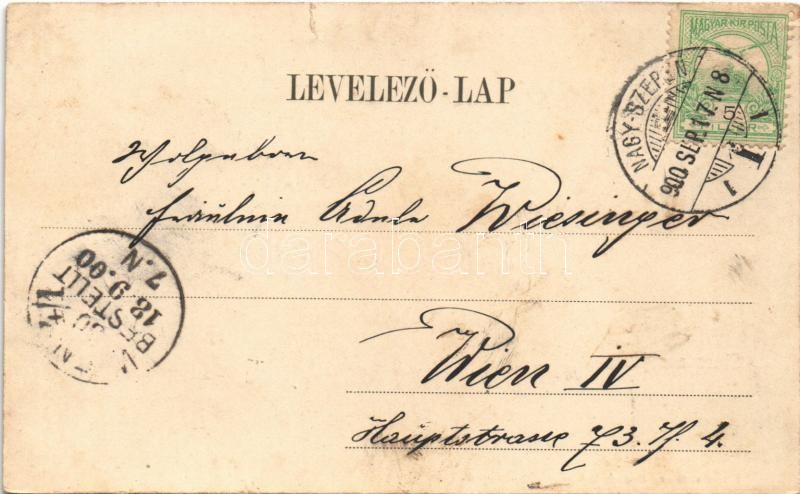 MAGYAR KIR. POSTA
LEVELEZŐ-LAP
NAGY-SZEBEN
900 SEP. 17. N 8
5
1
Wolgeborn
Fräulein Adele Wiesinger
darabanth
BESTELLT
18.9.00
7.N
Wien IV
Hauptstrasse 73. II. 4.